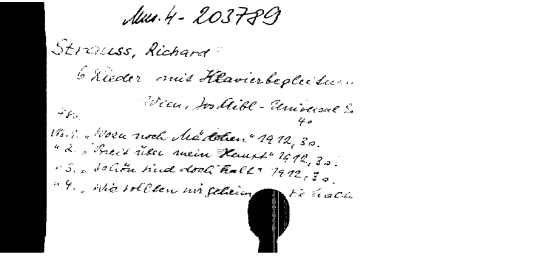 Mus. 4 - 203789
Strauss, Richard
6 Lieder mit Klavierbegleitun
Wien, Jos Aibl - Universal E
4o
Nr. 1. „Wozu noch Mädchen" 1912, 3 o.
" 2. „Breit über mein Haupt" 1912, 3 o.
" 3. „Schön sind doch kalt" 1912, 3 o.
" 4. „Wie sollten wir geheim sie halt